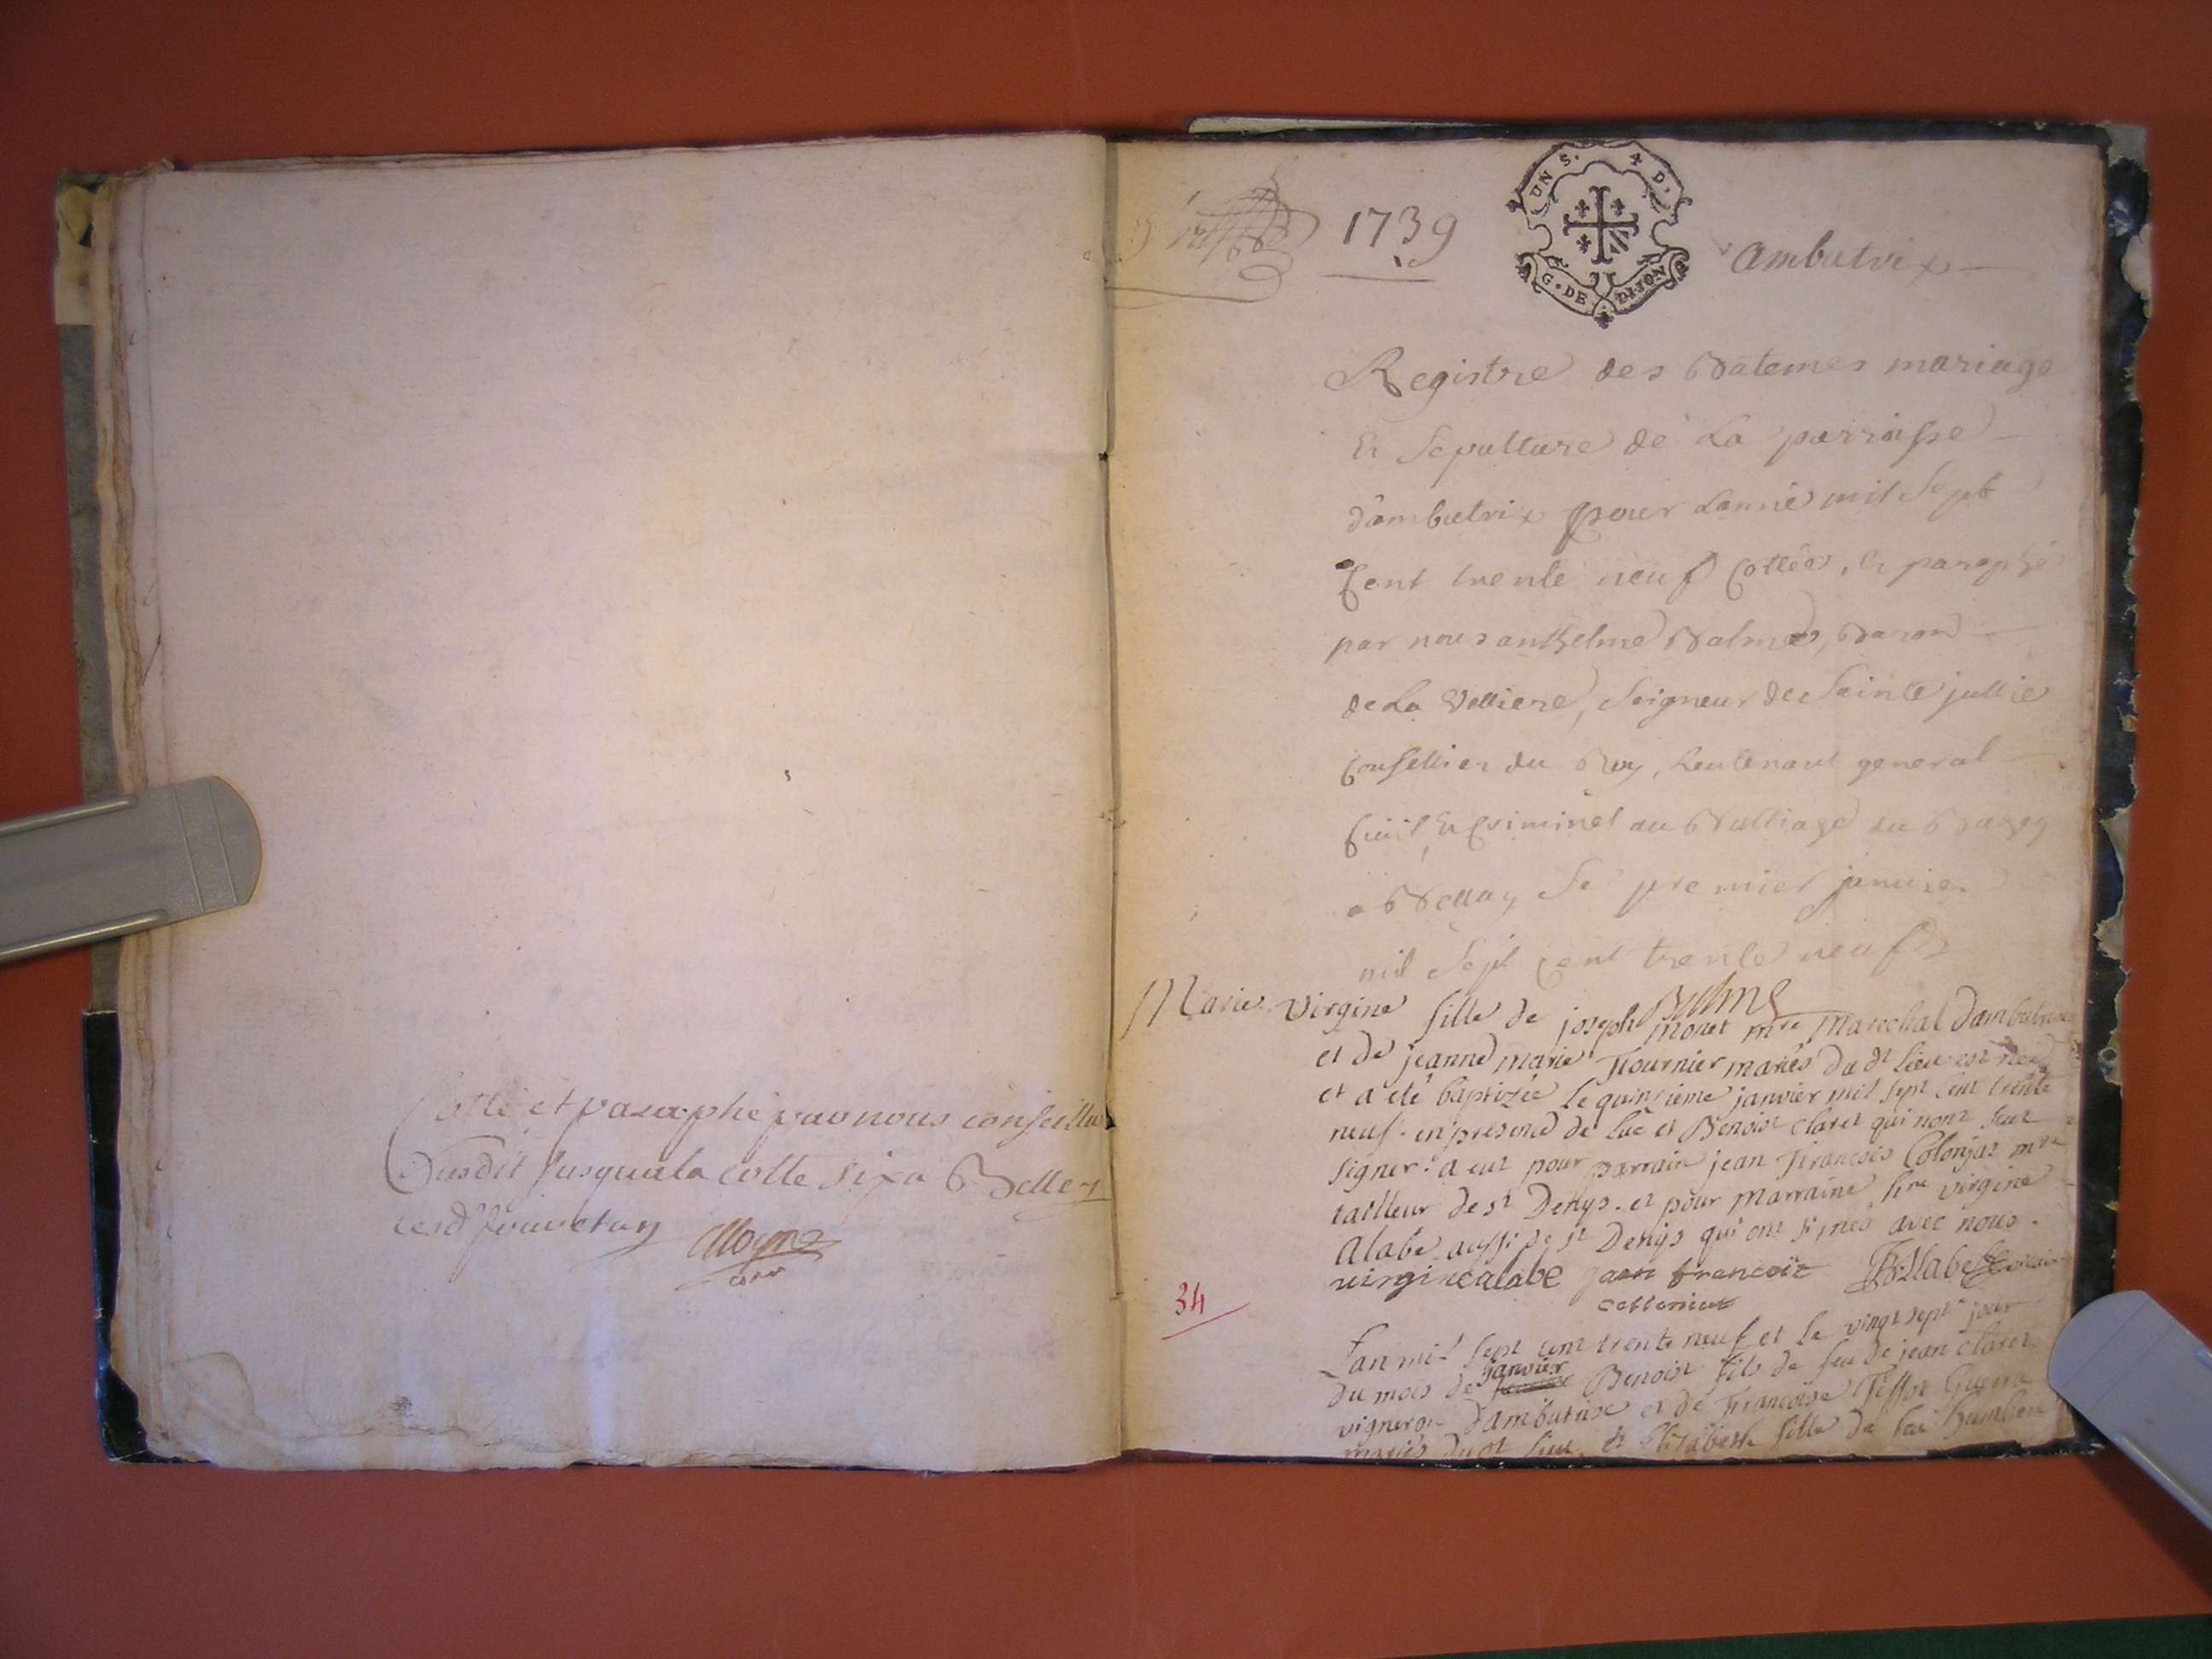 Cotté et paraphé par nous conseiller
susdit jusqua la cotte six a Belley
lesd jour et an
1739
UN S. 4 D.
G. DE DIJON
ambutrix
Registre des Batemes mariage
Et Sepulture de La parroisse
d'ambutrix pour Lanné mil Sept
Cent trente neuf Cottée, Et paraphé
par nous anthelme Balme, Baron
de La Velliere, Seigneur de Sainte jullie
Conseillier du Roy, Leutenant general
Civil, Et Criminel au Balliage du Bugey
a Belley Le premier janvier
mil Sept Cent trente neuf
Balme
Marie Virgine fille de joseph monet mtre marechal Dambutrix
et de jeanne marie Fournier mariés du dt Lieu est née
et a eté baptizée le quinsieme janvier mil sept cent trente
neuf. en presence de Luc et Benoist claret qui nont sceu
signer. a eut pour parrain jean François Colonjat mtre
tailleur de st Denys. et pour marraine virgine
alabe aussi de st Denys qui ont signés avec nous.
virgine alabe jean francoit
34
Lan mil sept cent trente neuf et le vingt sept jour
du mois de janvier Benoist fils de feu de jean claret
vigneron dambutrix et de Françoise Tissot Guerra
mariés du dt lieu et Elisabeth fille de feu humbert